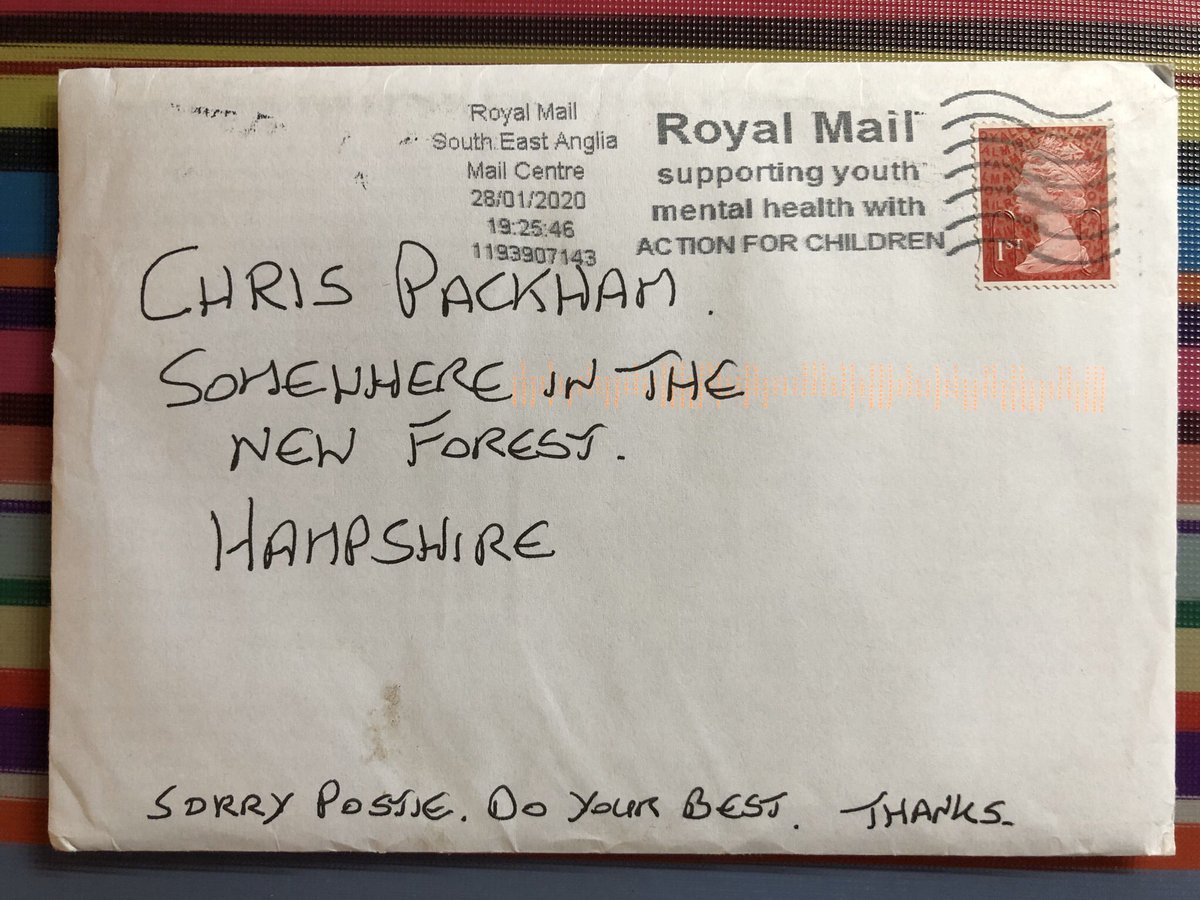 Royal Mail
South East Anglia
Mail Centre
28/01/2020
19:25:46
1193907143
Royal Mail
supporting youth
mental health with
ACTION FOR CHILDREN
1ST
CHRIS PACKHAM.
SOMEWHERE IN THE
NEW FOREST.
HAMPSHIRE
SORRY POSTIE. DO YOUR BEST. THANKS.